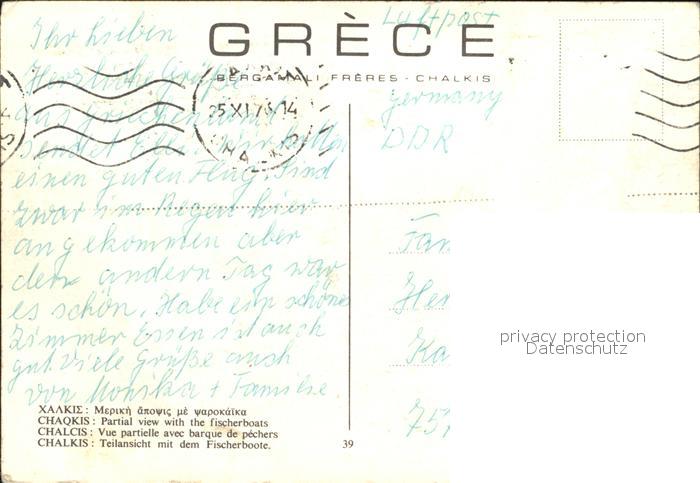 GRÈCE
BERGAMALI FRÈRES - CHALKIS
Luftpost
25 XI 14
Ihr Lieben
Herzliche Grüße
aus
sendet
einen guten Flug. Sind
zwar im Regen hier
angekommen aber
den andern Tag war
es schön. Habe ein schönes
Zimmer Essen ist auch
gut. Viele Grüße auch
von Monika + Familie.
Germany
DDR
Fam
Her
Ka
75
privacy protection
Datenschutz
ΧΑΛΚΙΣ : Μερική ἄποψις μὲ ψαροκάϊκα
CHAQKIS : Partial view with the fischerboats
CHALCIS : Vue partielle avec barque de pêchers
CHALKIS : Teilansicht mit dem Fischerboote.
39